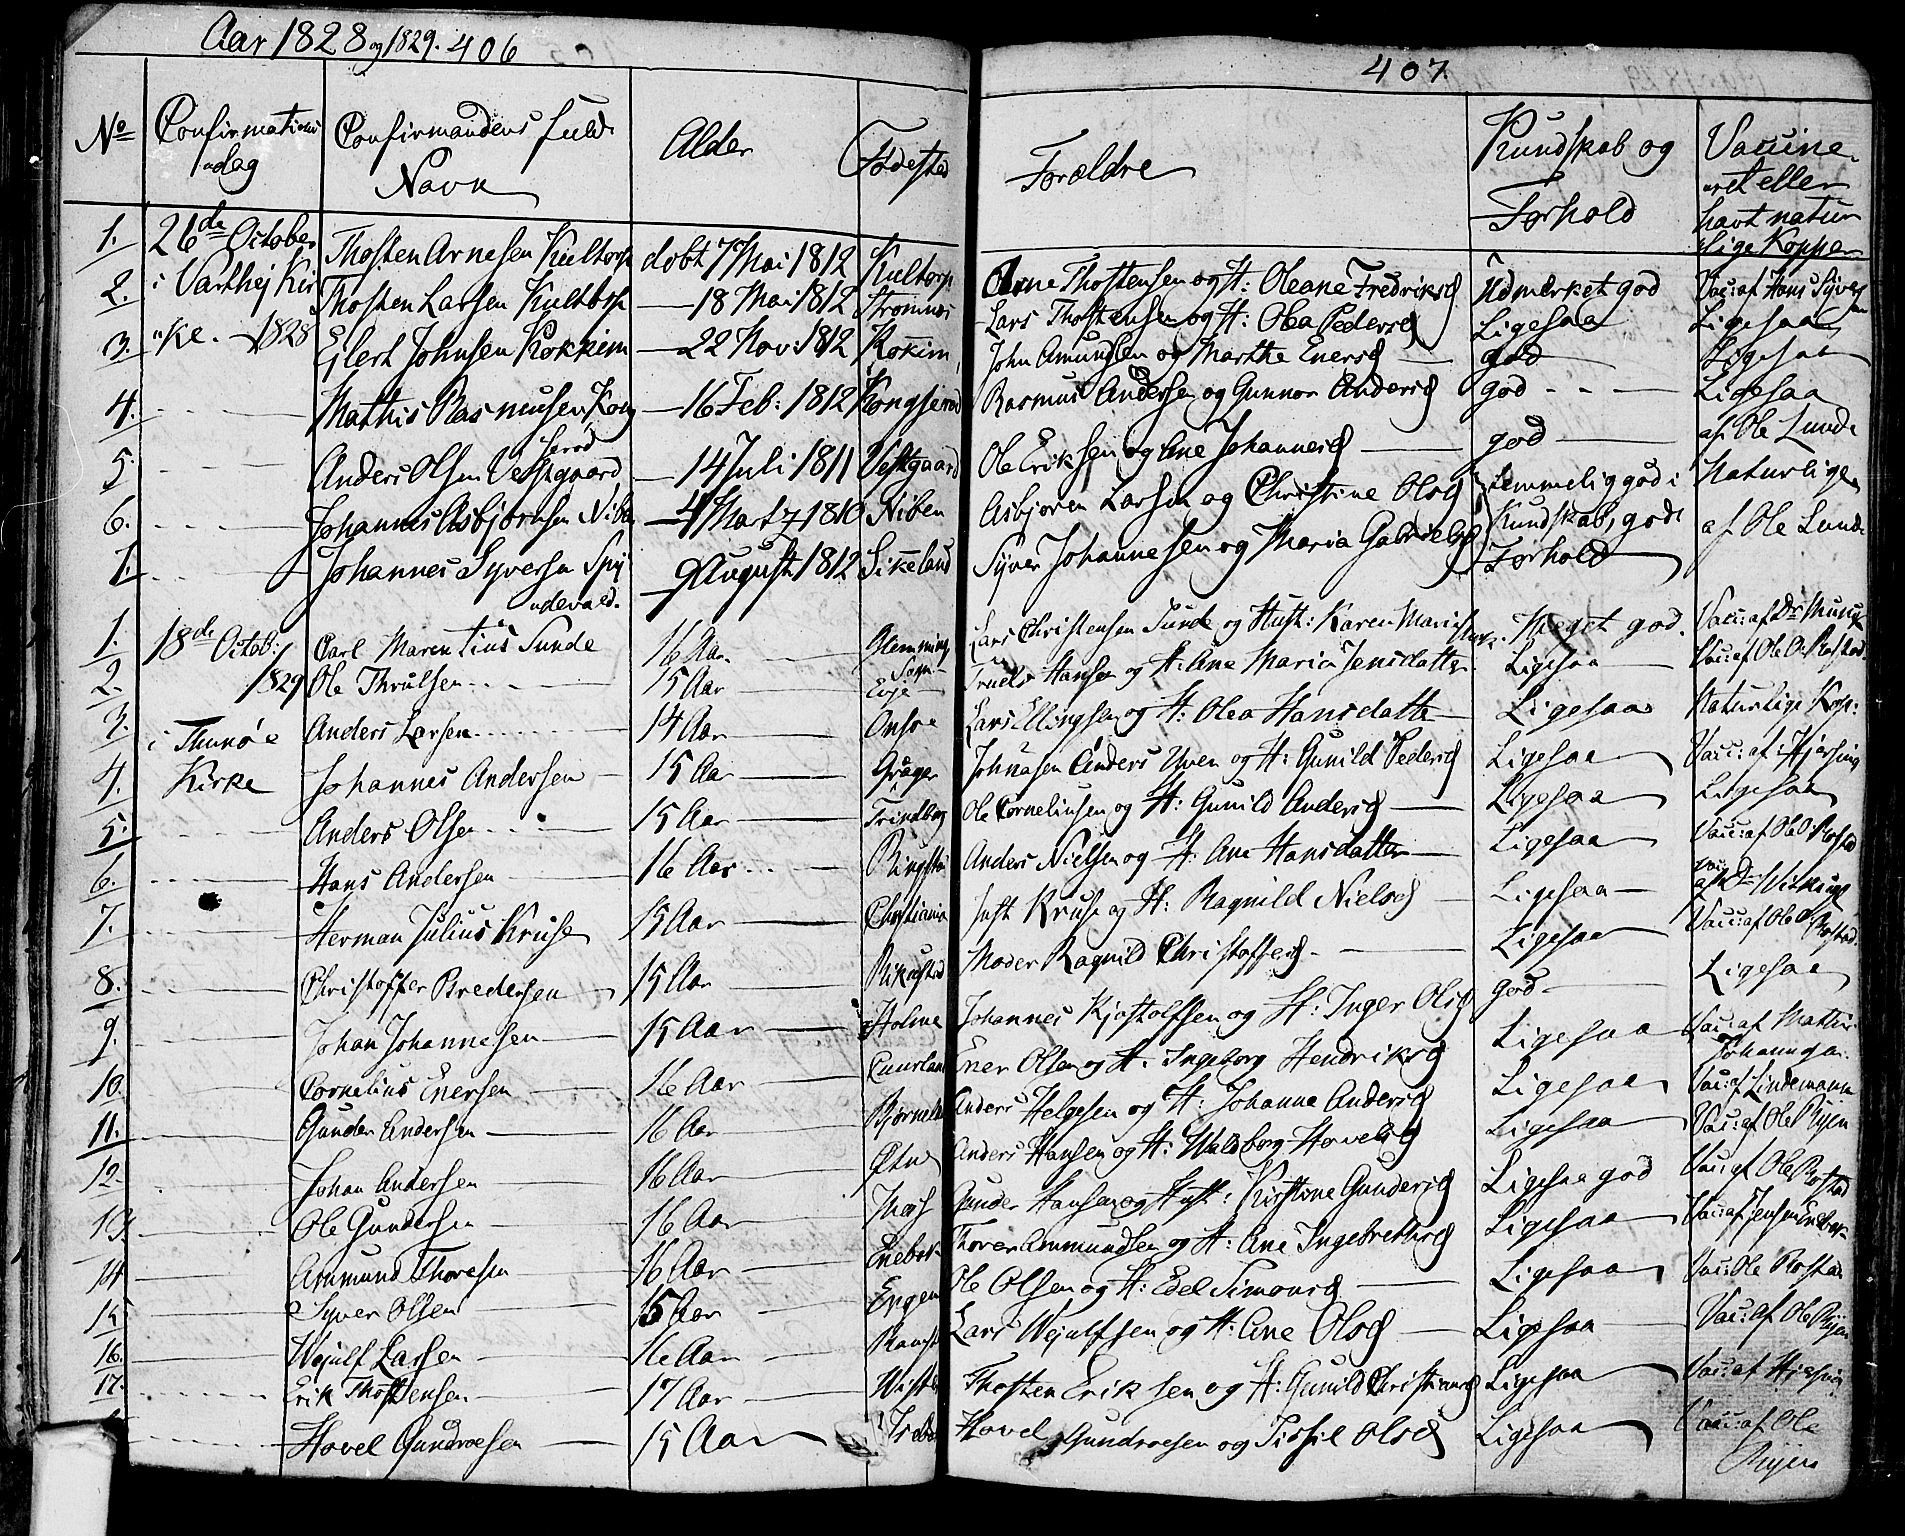 Aar 1828 og 1829. 406
No Confirmations dag Confirmandens fulde Navn Alder Fødested
1. 26de October Thosten Arnesen Kultorp døbt 7 Mai 1812 Kultorp
2. i Varthej Thosten Larsen Kultorp — 18 Mai 1812 Strømnes
3. Ke. 1828 Ejlert Johnsen Køkkim — 22 Nov: 1812 Køkim
4. Mathis Rasmusen Kong — 16 Feb: 1812 Kongserød
serød
5. Anders Olsen Vestgaard — 14 Juli 1811 Vestgaard
6. Johannes Asbjørnsen Niben — 4 Martz 1810 Niben
7. Johannes Syversen Spy — 9 August 1812 Sikeland
devald.
1. 18de Octob: Carl Marentius Sunde 16 Aar Glemminge
Sogn
2. 1829 Ole Thrulsen 15 Aar Evje
3. i Thunøe Anders Larsen 14 Aar Onsøe
4. Kirke Johannes Andersen 15 Aar Grager
5. Anders Olsen 15 Aar Trindborg
6. Hans Andersen 16 Aar
7. Herman Julius Kruse 15 Aar Christiania
8. Christoffer Bredersen 15 Aar Rikustad
9. Johan Johannesen 15 Aar Holme
10. Cornelius Enersen 16 Aar
11. Gunder Andersen 16 Aar
12. Johan Andersen 16 Aar
13. Ole Gundersen 16 Aar
14 Ammund Thoresen 16 Aar Enebak
15 Syver Olsen 15 Aar Engen
16. Wejulf Larsen 16 Aar
17. Erik Thostensen 17 Aar
Hovel Gundroesen 15 Aar
407
Forældre Kundskab og Forhold Vaccine
ret eller
havt natur
lige Kopper
Arne Thostensen og H: Oleane Fredriksd Udmerket god Vac: af Hans Syvers
Lars Thostensen og H: Olea Pedersd Ligesaa Ligesaa
John Amundsen og Marthe Enersd god Ligesaa
Rasmus Andersen og Gunnor Andersd god Ligesaa
Ole Eriksen og Ane Johannesd god af Ole Lunde
Asbjøren Larsen og Christine Olsd temmelig god i Naturlige
Kundskab, godt
Syver Johannesen og Maria Gabrielsd Forhold af Ole Lunde
Lars Christensen Sunde og Hust: Karen Maria Meget god. Vac: af Dr
Truels Hansen og H: Ane Maria Jensdatter Ligesaa Vac: af Ole O: Rostad
Lars Ellingsen og H: Olea Hansdatte Ligesaa Naturlige Kop:
Johnasen Anders Uven og H: Gunild Pedersd Ligesaa Vacc: af Hjersing
Ole Corneliusen og H: Gunild Andersd Ligesaa Ligesaa
Anders Nielsen og H: Ane Hansdatter Ligesaa Vacc: af Ole O: Rostad
Just Kruse og H: Ragnild Nielsd Ligesaa
Moder Ragnild Christoffersd Ligesaa Vacc: af Ole O Rostad.
Johannes Kjøstolfsen og H: Inger Olsd god Ligesaa
Ener Olsen og H. Ingeborg Hendriksd Ligesaa Vac: af Mathis
Anders Helgesen og H: Johanne Andersd Ligesaa Vac: af Lindemann
Anders Hansen og H: Waldborg Hovelsd Ligesaa Vac: af Ole Ryen
Gunder Hansen og Hust: Kirstine Gundersd Ligesaa god Vac: af Ole Rostad
Thorer Ammundsen og H: Ane Ingebrettsd Ligesaa Vac: af
Ole Olsen og H: Edel Simonsd Ligesaa Vac: Ole Rostad
Lars Wejulfsen og H: Ane Olsd Ligesaa Vac: af Ole Ryen
Thosten Eriksen og H: Gunild Christiansd Ligesaa Vac: af Hjersing
Hovel Gundroesen og Sissil Olsd Ligesaa Vacc: af Ole
Ryen